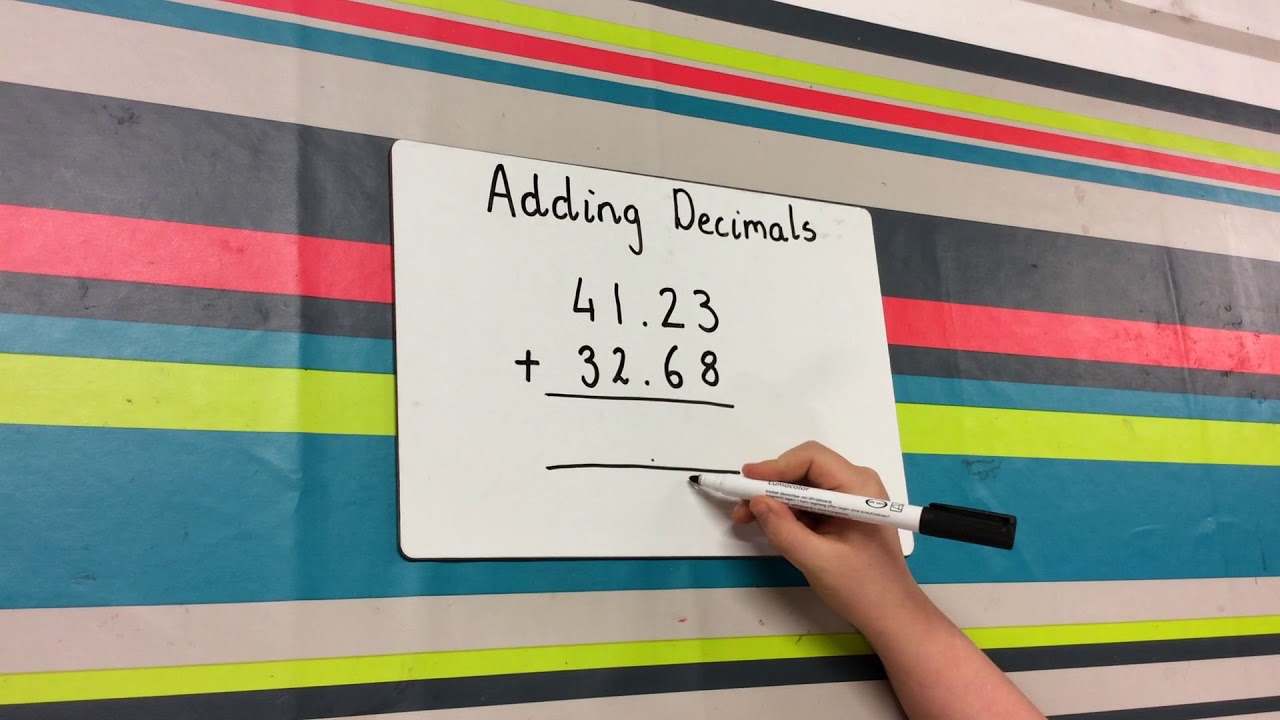 Adding Decimals
41.23
+ 32.68
.
Lumocolor